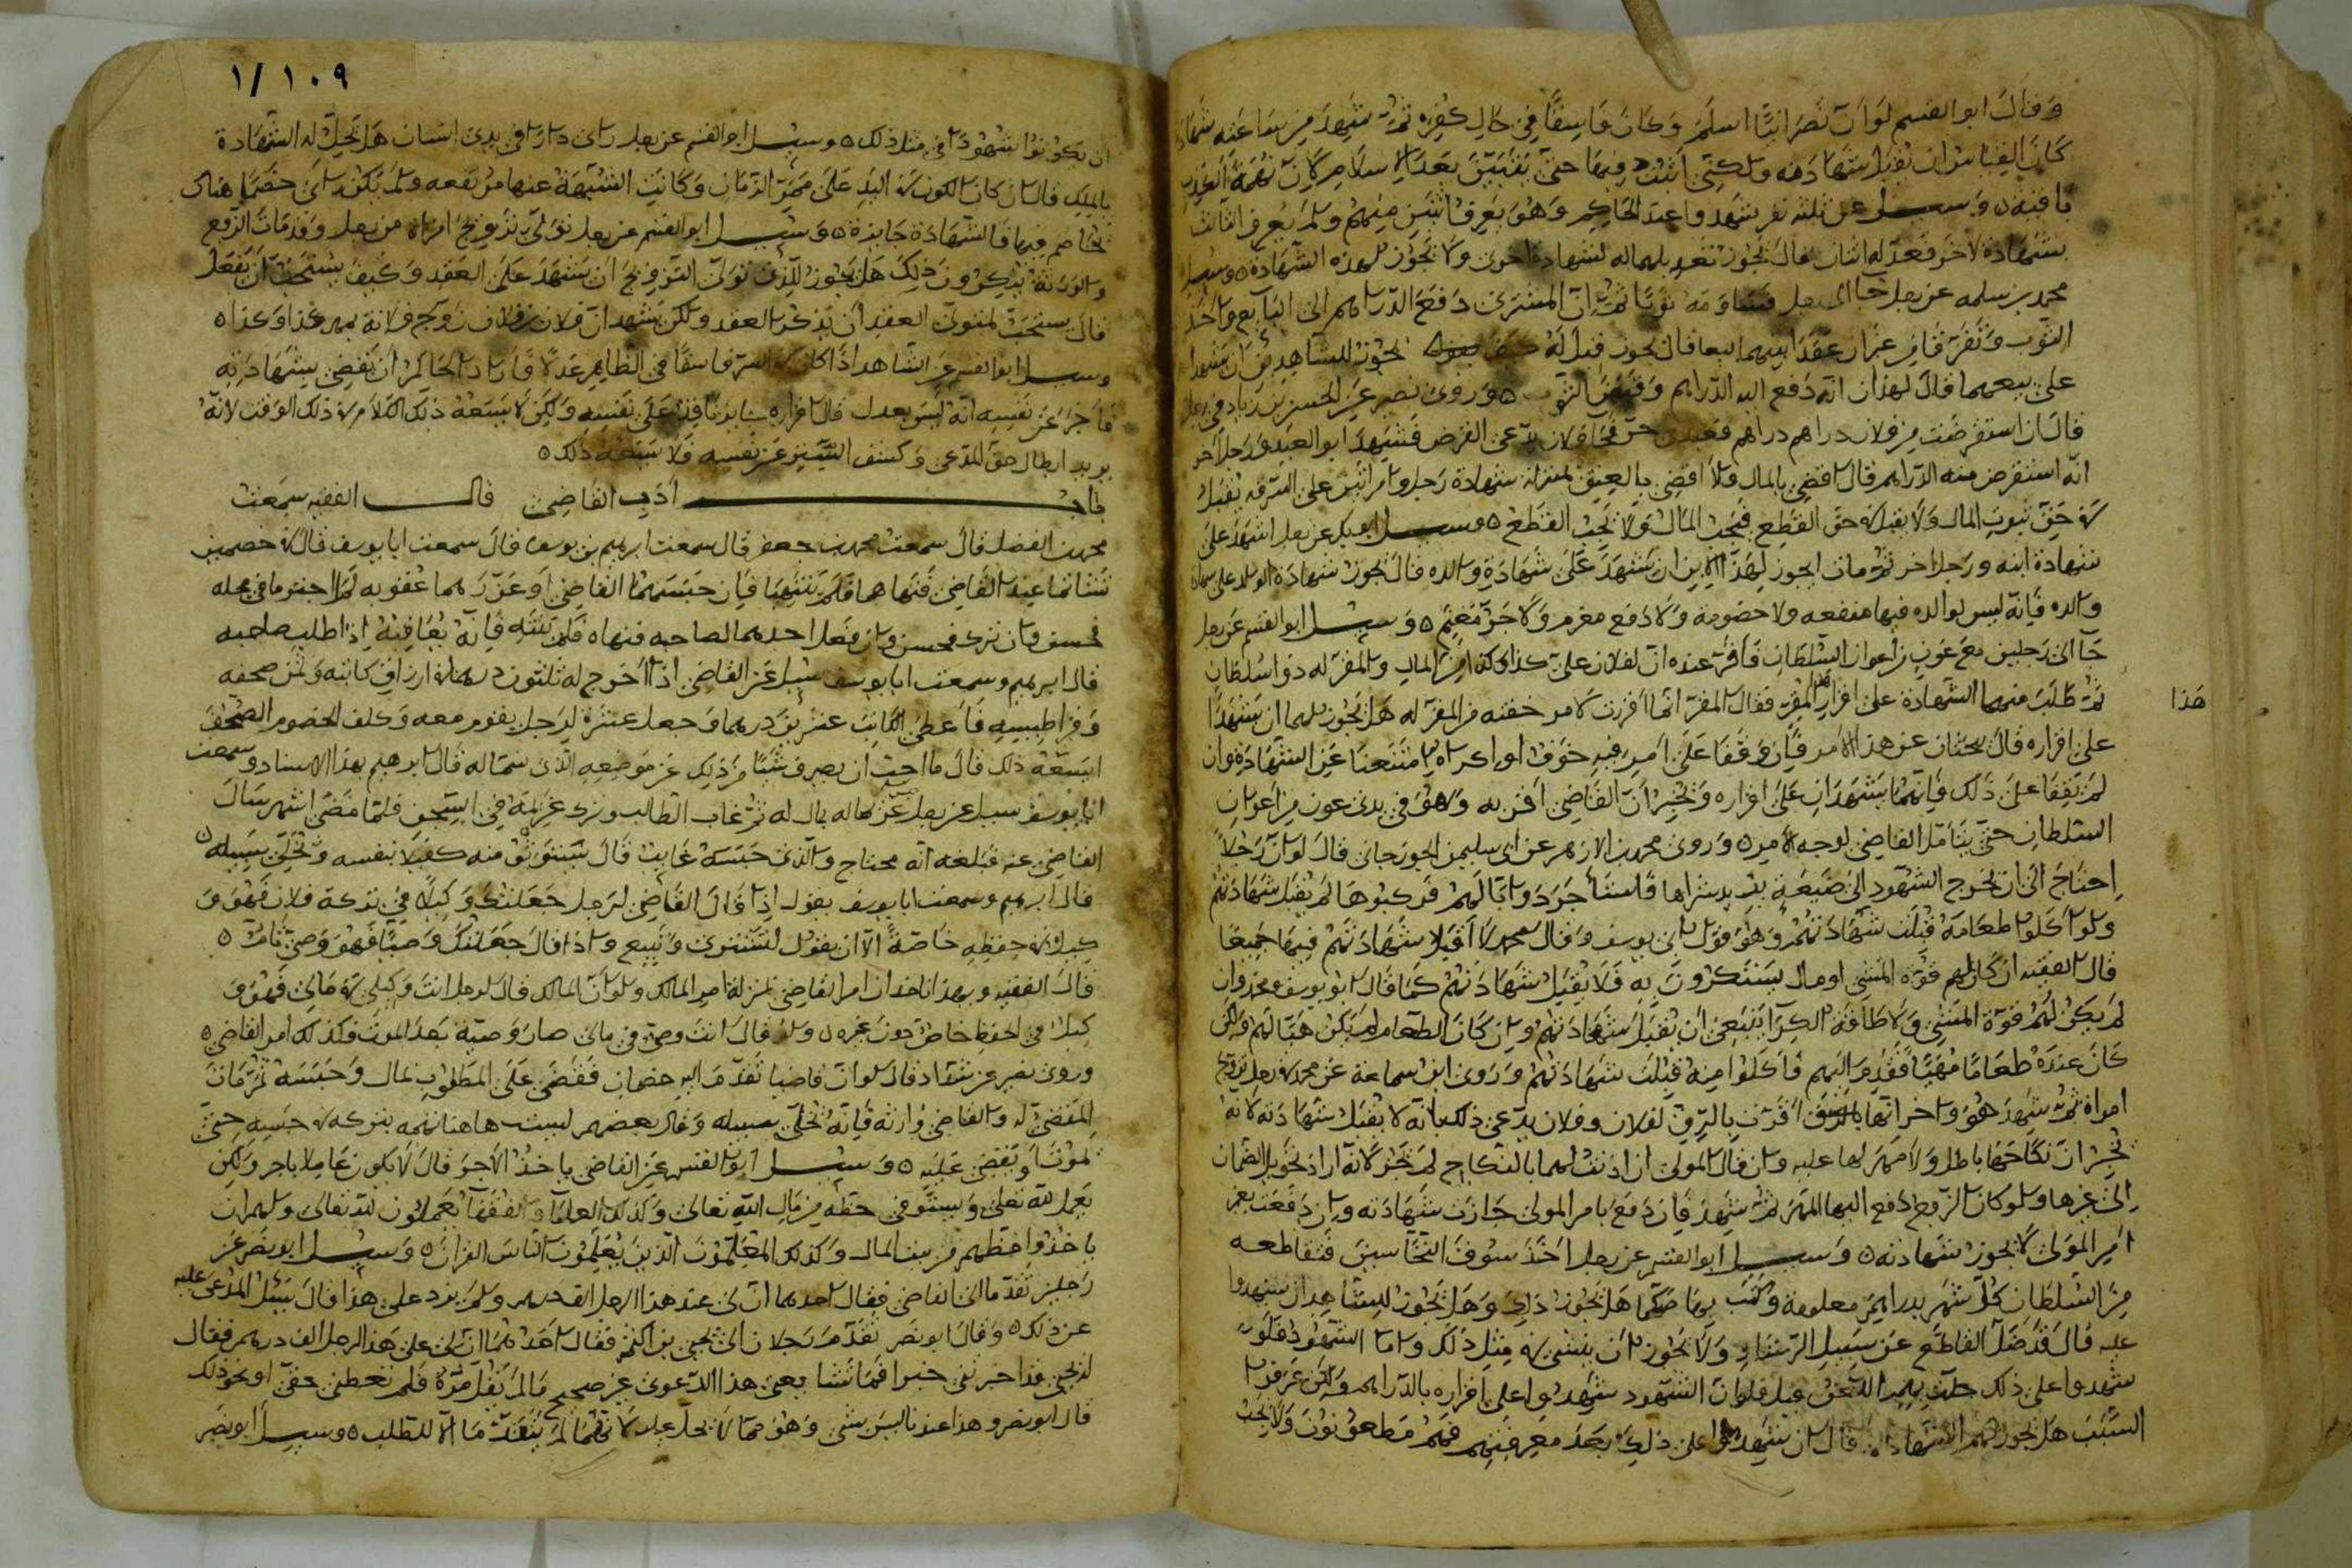 وقال ابو القسم لو ان نصرانيا اسلم وكان فاسقا في حال كفره ثم شهد من ساعته شهادة
كان القياس ان تقبل شهادته ولكني اتثبت فيها حتى يتبين بعد الاسلام لان تهمة
باقية ه وسيل عن ثلثة نفر شهدوا عند الحاكم وهو يعرف اثنين منهم ولم يعرف الثالث
بشهادة لاخر فعدله اثنان قال يجوز تعديلهما له لشهادة اخرى ولا يجوز لهذه الشهادة ه وسيل
محمد بن سلمه عن رجل جا الى رجل فساومه ثوبا ثم ان المشترى دفع الدراهم الى البايع واخذ
الثوب وتفرقا من غير ان عقدا بينهما البيع قال يجوز قيل له كيف يجوز للشاهدين ان يشهدا
على بيعهما قال يشهدان انه دفع اليه الدراهم وقبض الثوب ه وروى نصير عن الحسن بن زياد في رجل
قال ان استقرضت من فلان دراهم فعبدى حر فجا فلان يدعى القرض فشهد ابو العبد ورجل اخر
انه استقرض منه الدراهم قال اقضى بالمال ولا اقضى بالعتق بمنزلة شهادة رجل وامراتين على السرقة يقبل
في حق ثبوت المال ولا يقبل في حق القطع فيجب المال ولا يجب القطع ه وسيل ابو بكر عن رجل اشهد على
شهادة ابنه ورجلا اخر ثم مات ايجوز لهذا الابن ان يشهد على شهادة والده قال يجوز شهادة الولد على شهادة
والده فانه ليس لوالده فيها منفعه ولا خصومة ولا دفع مغرم ولا جر مغنم ه وسيل ابو القسم عن رجل
جا الى رجلين مع عون من اعوان السلطان فاقر عنده ان لفلان على كذى كذا من المال والمقر له ذو سلطان
ثم طلب منهما الشهادة على اقرار هذا المقر فقال المقر انما اقررت لامر خفته من المقر له هل يجوز لهما ان يشهدا
هذا
على اقراره قال يبحثان عن هذا الامر فان وقفا على امر فيه خوف او اكراه امتنعا عن الشهادة وان
لم يقفا على ذلك فانهما يشهدان على اقراره ويخبران القاضى اقر به وهو في يدى عون من اعوان
السلطان حتى يتامل القاضى لوجه الامر ه وروى محمد بن الازهر عن ابى سليمن الجوزجانى قال لو ان رجلا
احتاج الى ان يخرج الشهود الى ضيعة يريد شراها فاستأجر دوابا لهم فركبوها لم يقبل شهادتهم
ولو اكلوا طعامه قبلت شهادتهم وهو قول ابى يوسف وقال محمد لا اقبل شهادتهم فيها جميعا
قال الفقيه ان كان لهم قوة المشى او مال يستكرون به فلا يقبل شهادتهم كما قال ابو يوسف ومحمد وان
لم يكن لهم قوة المشى ولا طاقة الكرا ينبغى ان تقبل شهادتهم وان كان الطعام لم يكن هيا لهم ولكن
كان عنده طعاما مهيا فقدم اليهم فاكلوا منه قبلت شهادتهم وروى ابن سماعة عن محمد في رجل تزوج
امراة ثم شهد هو واخر انها اقرت بالرق لفلان وفلان يدعى ذلك بانه لا يقبل شهادته لانه
يخبر ان نكاحها باطل ولا مهر لها عليه وان قال المولى ان اذنت لهما بالنكاح لم يجز لانه اراد تحويل الضمان
الى غيرها ولو كان الزوج دفع اليها المهر ثم شهد فان دفع بامر المولى جازت شهادته وان دفعت بغير
امر المولى لا يجوز شهادته ه وسيل ابو القسم عن رجل اخذ سوق النخاسين فقاطعه
من السلطان كل شهر بدراهم معلومة وكتب بها صكا هل يجوز ذلك وهل يجوز للشاهد ان يشهدوا
عليه قال قد ضل القاطع عن سبيل الرشاد ولا يجوز ان يشى في مثل ذلك واما الشهود فلو
شهدوا على ذلك حلت بهم اللعن قيل فلو ان الشهود شهدوا على اقراره بالدراهم ولكن عرفوا
السبب هل يجوز لهم الشهادة قال ان شهدوا على ذلك بعد معرفتهم فهم مطعونون ولا يجب
١٠٩ /١
ان يكونوا شهودا في مثل ذلك ه وسيل ابو القسم عن رجل راى دارا في يدى انسان هل تحل له الشهادة
بالملك قال ان كان الكون في اليد على ممر الزمان وكانت الشبهة عنها مرتفعه ولم يكن راى خصما هناك
يخاصم فيها فالشهادة جايزة ه وسيل ابو القسم عن رجل تولى تزويج امراة من رجل وقد مات الزوج
والورثة ينكرون ذلك هل يجوز للذى تولى التزويج ان يشهد على العقد وكيف يستحب ان يفعل
قال يستحب لمتولى العقد ان يذكر العقد ولكن يشهد ان فلان بن فلان زوج فلانة بمهر كذا وكذا ه
وسيل ابو القسم عن الشاهد اذا كان في السر فاسقا في الظاهر عدلا فاراد الحاكم ان يقضى بشهادته
فاخبر عن نفسه انه ليس بعدل قال اقراره نافذ على نفسه ولكن لا يسعه ذلك الكلام في ذلك الوقت لانه
يريد ابطال حق المدعى وكشف الستر عن نفسه فلا يسعه ذلك ه
باب ادب القاضى قال الفقيه سمعت
محمد بن الفضل قال سمعت محمد بن جعفر قال سمعت ابرهيم بن يوسف قال سمعت ابا يوسف قال في خصمين
تشاتما عند القاضى فنهاهما فلم ينتهيا فان حبسهما القاضى او عزرهما عقوبه لهما لاجترما في مجلسه
فحسن وان ترك فحسن وان فعل احدهما لصاحبه فنهاه فلم ينته فانه يعاقبه اذا طلب صاحبه
قال ابرهيم وسمعت ابا يوسف سيل عن القاضى اذا اخرج له ثلثون درهما في ارزاق كاتبه وثمن صحفه
وقراطيسه فاعطى الكاتب عشرين درهما وجعل عشرة لرجل يقوم معه وكلف الخصوم الصحف
ايسعه ذلك قال ما احب ان يصرف شيئا من ذلك عن موضعه الذى سماه له قال ابرهيم بهذا الاسناد وسمعت
ابا يوسف سيل عن رجل حبس رجلا بمال له ثم غاب الطالب وترك غريمه في السجن فلما مضى اشهر سال
القاضى عنه فبلغه انه محتاج والذى حبسه غايب قال يستوثق منه كفيلا بنفسه ويخلى سبيله
قال ابرهيم وسمعت ابا يوسف يقول اذا قال القاضى لرجل جعلتك وكيلا في تركة فلان فهو و
كيل في حفظه خاصة الا ان يقول ليشترى ويبيع واذا قال جعلتك وصيا فهو وصى تام ه
قال الفقيه وبهذا ناخذ ان امر القاضى بمنزلة امر المالك ولو ان المالك قال لرجل انت وكيلى في مالى فهو و
كيل في الحفظ خاص دون غيره ه ولو قال انت وصيى في مالى صار وصيه بعد الموت فكذلك امر القاضى ه
وروى نصير عن شداد قال لو ان قاضيا تقدم اليه خصمان فقضى على المطلوب بمال وحبسه ثم مات
المقضى له والقاضى وارثه فانه يخلى سبيله وقال بعضهم ليست هاهنا تهمه يتركه في حبسه حتى
يموت او يقضى عليه ه وسيل ابو القسم عن القاضى ياخذ الاجر قال لا يكون عاملا باجر ولكن
يعمل لله تعلى ويستوفى حظه من مال الله تعالى وكذلك العلما والفقها يعملون لله تعالى ولهم ان
ياخذوا حظهم من بيت المال وكذلك المعلمون الذين يعلمون الناس القران ه وسيل ابو نصر عن
رجلين تقدما الى القاضى فقال احدهما ان لى عند هذا الرجل الف درهم ولم يزد على هذا قال يسئل المدعى عليه
عن ذلك ه وقال ابو نصر تقدم رجلان الى يحيى بن اكثم فقال احدهما ان لى على هذا الرجل الف درهم فقال
له يحيى قد اخبرتنى خبرا فما تشا يعنى هذا الدعوى غير صحيح ما لم يقل مره فلم تعطنى حقى او نحو ذلك
قال ابو نصر وهذا عندنا ليس بشى وهو مما لا يحل عليه لانهما لم يتقدما الا للطلب ه وسيل ابو نصر